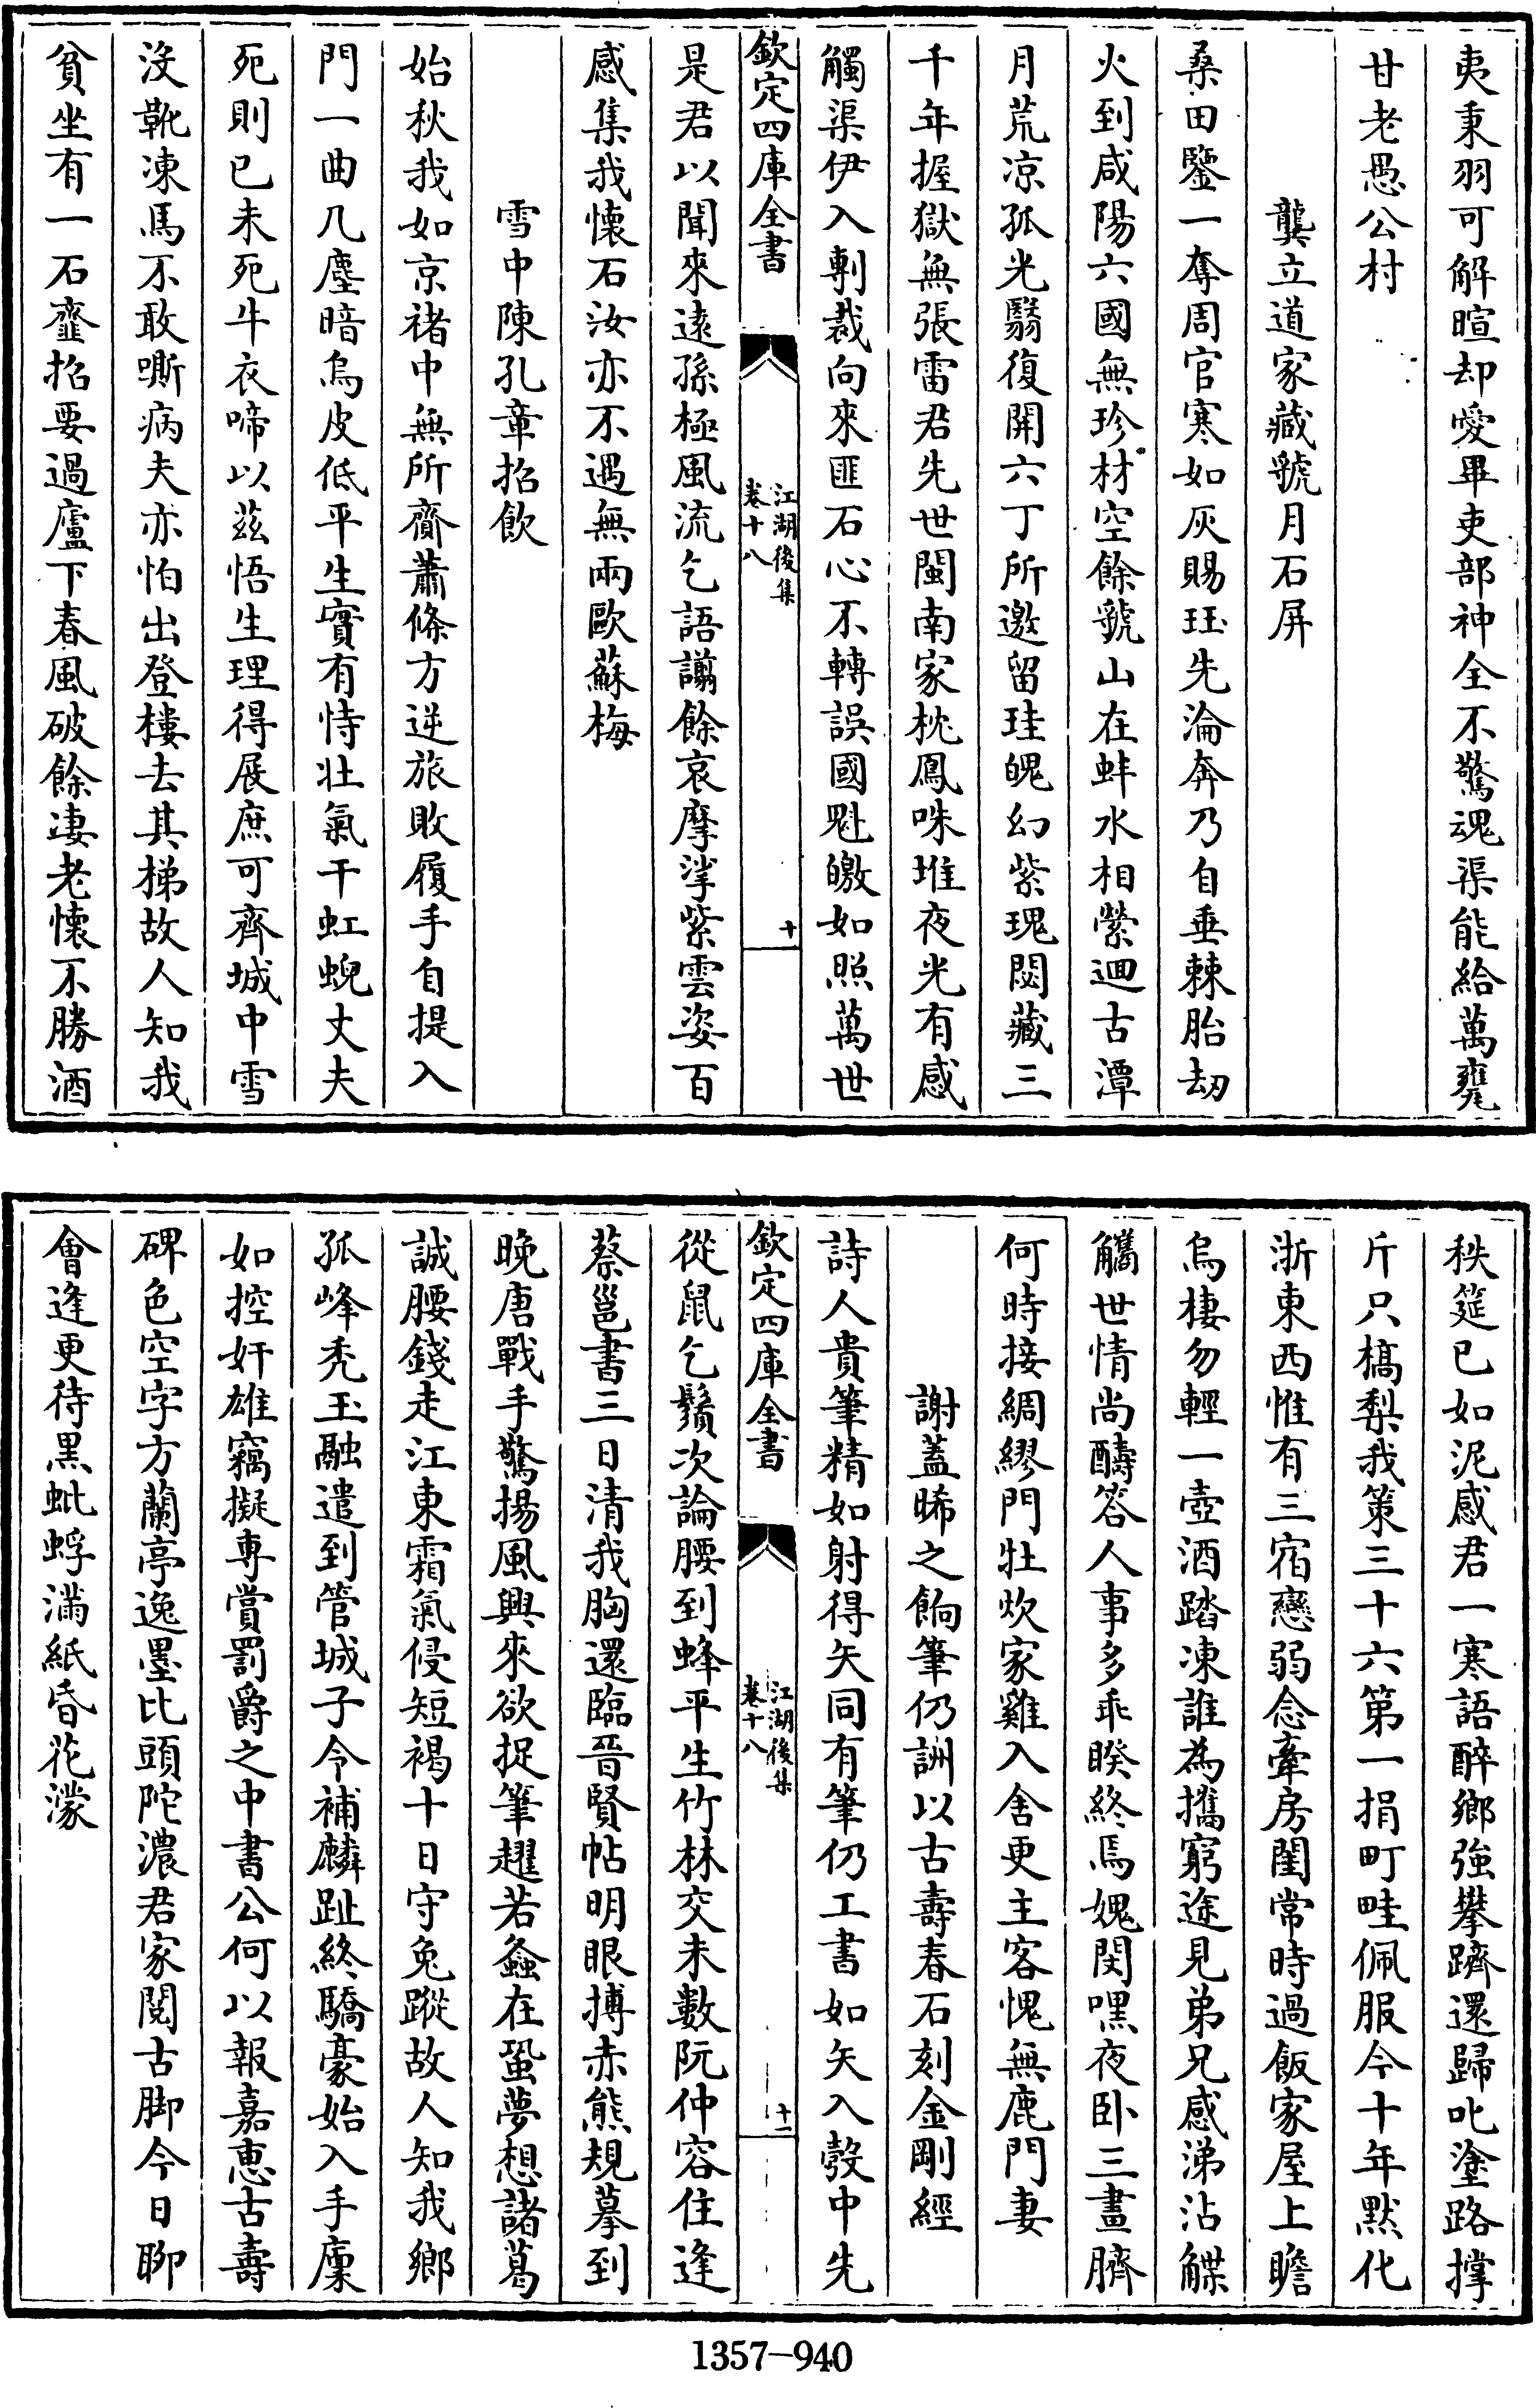 夷秉羽可解暄却愛畢吏部神全不驚魂渠能給萬甕
甘老愚公村
龔立道家藏虢月石屏
桑田鑒一奪周官寒如灰賜珏先淪奔乃自垂棘胎刼
火到咸陽六國無珍材空餘虢山在蚌水相縈迴古潭
月荒凉孤光翳復開六丁所邀留珪魄幻紫瑰閟藏三
千年握獄無張雷君先世閩南家枕鳳咮堆夜光有感
觸渠伊入剸裁向來匪石心不轉誤國魁皦如照萬世
欽定四庫全書
江湖後集
卷十八
十
是君以聞來遠孫極風流乞語謭餘哀摩挲紫雲姿百
感集我懷石汝亦不遇無兩歐蘇梅
雪中陳孔章招飲
始秋我如京褚中無所齎蕭條方逆旅敗履手自提入
門一曲几塵暗烏皮低平生實有恃壯氣干虹蜺丈夫
死則已未死牛衣啼以兹悟生理得展庶可齊城中雪
沒靴凍馬不敢嘶病夫亦怕出登樓去其梯故人知我
貧坐有一石虀招要過廬下春風破餘凄老懷不勝酒
秩筵已如泥感君一寒語醉鄉強攀躋還歸叱塗路撑
斤只槁梨我策三十六第一捐町畦佩服今十年默化
浙東西惟有三宿戀弱念牽房閨常時過飯家屋上瞻
烏棲勿輕一壺酒踏凍誰為攜窮途見弟兄感涕沾鰈
觿世情尚醻答人事多乖睽終焉媿閔嘿夜卧三畫臍
何時接綢繆門牡炊家雞入舍更主客愧無鹿門妻
謝蓋晞之餉筆仍詶以古壽春石刻金剛經
詩人貴筆精如射得矢同有筆仍工書如矢入彀中先
欽定四庫全書
江湖後集
卷十八
十一
從鼠乞鬚次論腰到蜂平生竹林交未數阮仲容住逢
蔡邕書三日清我胸還臨晉賢帖明眼搏赤熊規摹到
晚唐戰手驚揚風興來欲捉筆趯若螽在蛩夢想諸葛
誠腰錢走江東霜氣侵短褐十日守兔蹤故人知我鄉
孤峰禿玉融遣到管城子令補麟趾終驕豪始入手廩
如控奸雄竊擬専賞罰爵之中書公何以報嘉惠古壽
碑色空字方蘭亭逸墨比頭陀濃君家閱古脚今日聊
會逢更待黑蚍蜉滿紙昏花濛
1357-940